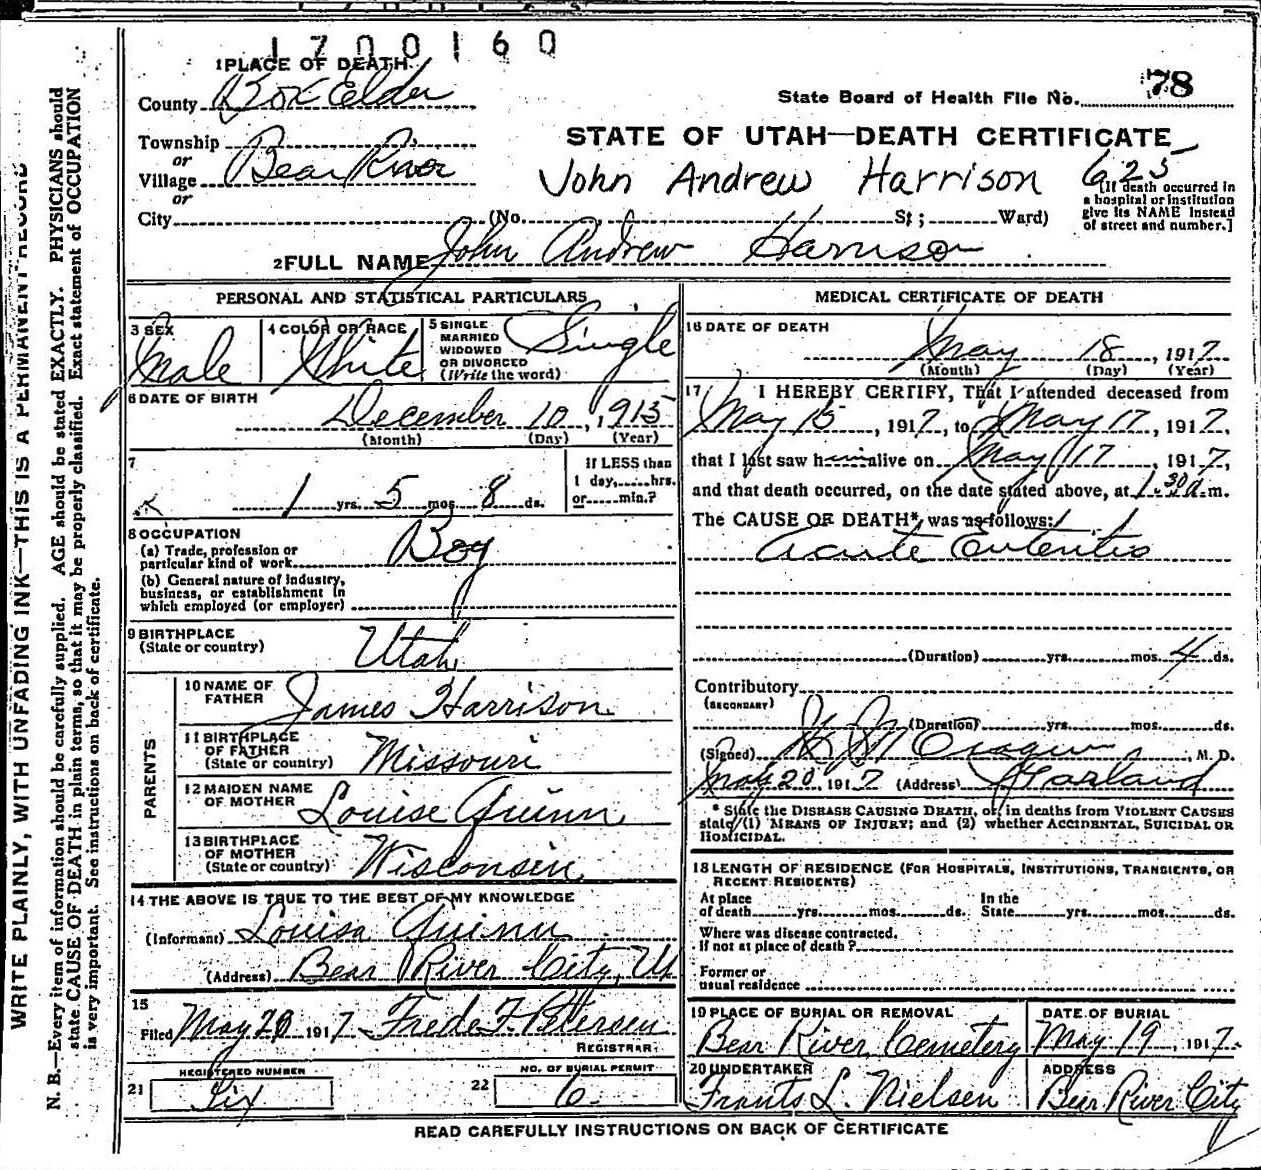 1700160
1 PLACE OF DEATH
County Box Elder
State Board of Health File No. 78
Township
or
Village Bear River
or
City (No. St; Ward)
STATE OF UTAH—DEATH CERTIFICATE
John Andrew Harrison 625
[If death occurred in
a hospital or institution
give its NAME instead
of street and number.]
2 FULL NAME John Andrew Harrison
PERSONAL AND STATISTICAL PARTICULARS
3 SEX
Male
4 COLOR OR RACE
White
5 SINGLE
MARRIED
WIDOWED
OR DIVORCED
(Write the word)
Single
6 DATE OF BIRTH
December 10, 1915
(Month) (Day) (Year)
7
1 yrs. 5 mos. 8 ds.
If LESS than
1 day,......hrs.
or......min.?
8 OCCUPATION
(a) Trade, profession or
particular kind of work Boy
(b) General nature of industry,
business, or establishment in
which employed (or employer)
9 BIRTHPLACE
(State or country) Utah
PARENTS
10 NAME OF
FATHER James Harrison
11 BIRTHPLACE
OF FATHER
(State or country) Missouri
12 MAIDEN NAME
OF MOTHER Louise Quinn
13 BIRTHPLACE
OF MOTHER
(State or country) Wisconsin
14 THE ABOVE IS TRUE TO THE BEST OF MY KNOWLEDGE
(Informant) Louisa Quinn
(Address) Bear River City, Ut
15
Filed May 20 1917 Frede F. Petersen
REGISTRAR
21 REGISTERED NUMBER
Six
22 NO. OF BURIAL PERMIT
6
MEDICAL CERTIFICATE OF DEATH
16 DATE OF DEATH
May 18, 1917
(Month) (Day) (Year)
17 I HEREBY CERTIFY, That I attended deceased from
May 15, 1917, to May 17, 1917,
that I last saw him alive on May 17, 1917,
and that death occurred, on the date stated above, at 1.30 a.m.
The CAUSE OF DEATH*, was as follows:
Acute Enteritis
(Duration) yrs. mos. 4 ds.
Contributory
(SECONDARY)
(Duration) yrs. mos. ds.
(Signed) , M. D.
May 20, 1917 (Address) Garland
* State the DISEASE CAUSING DEATH, or, in deaths from VIOLENT CAUSES
state (1) MEANS OF INJURY; and (2) whether ACCIDENTAL, SUICIDAL OR
HOMICIDAL.
18 LENGTH OF RESIDENCE (FOR HOSPITALS, INSTITUTIONS, TRANSIENTS, OR
RECENT RESIDENTS)
At place In the
of death yrs. mos. ds. State yrs. mos. ds.
Where was disease contracted.
if not at place of death?
Former or
usual residence
19 PLACE OF BURIAL OR REMOVAL
Bear River Cemetery
DATE OF BURIAL
May 19, 1917
20 UNDERTAKER
Frants L. Nielsen
ADDRESS
Bear River City
READ CAREFULLY INSTRUCTIONS ON BACK OF CERTIFICATE
WRITE PLAINLY, WITH UNFADING INK—THIS IS A PERMANENT RECORD
N. B.—Every item of information should be carefully supplied. AGE should be stated EXACTLY. PHYSICIANS should
state CAUSE OF DEATH in plain terms, so that it may be properly classified. Exact statement of OCCUPATION
is very important. See instructions on back of certificate.